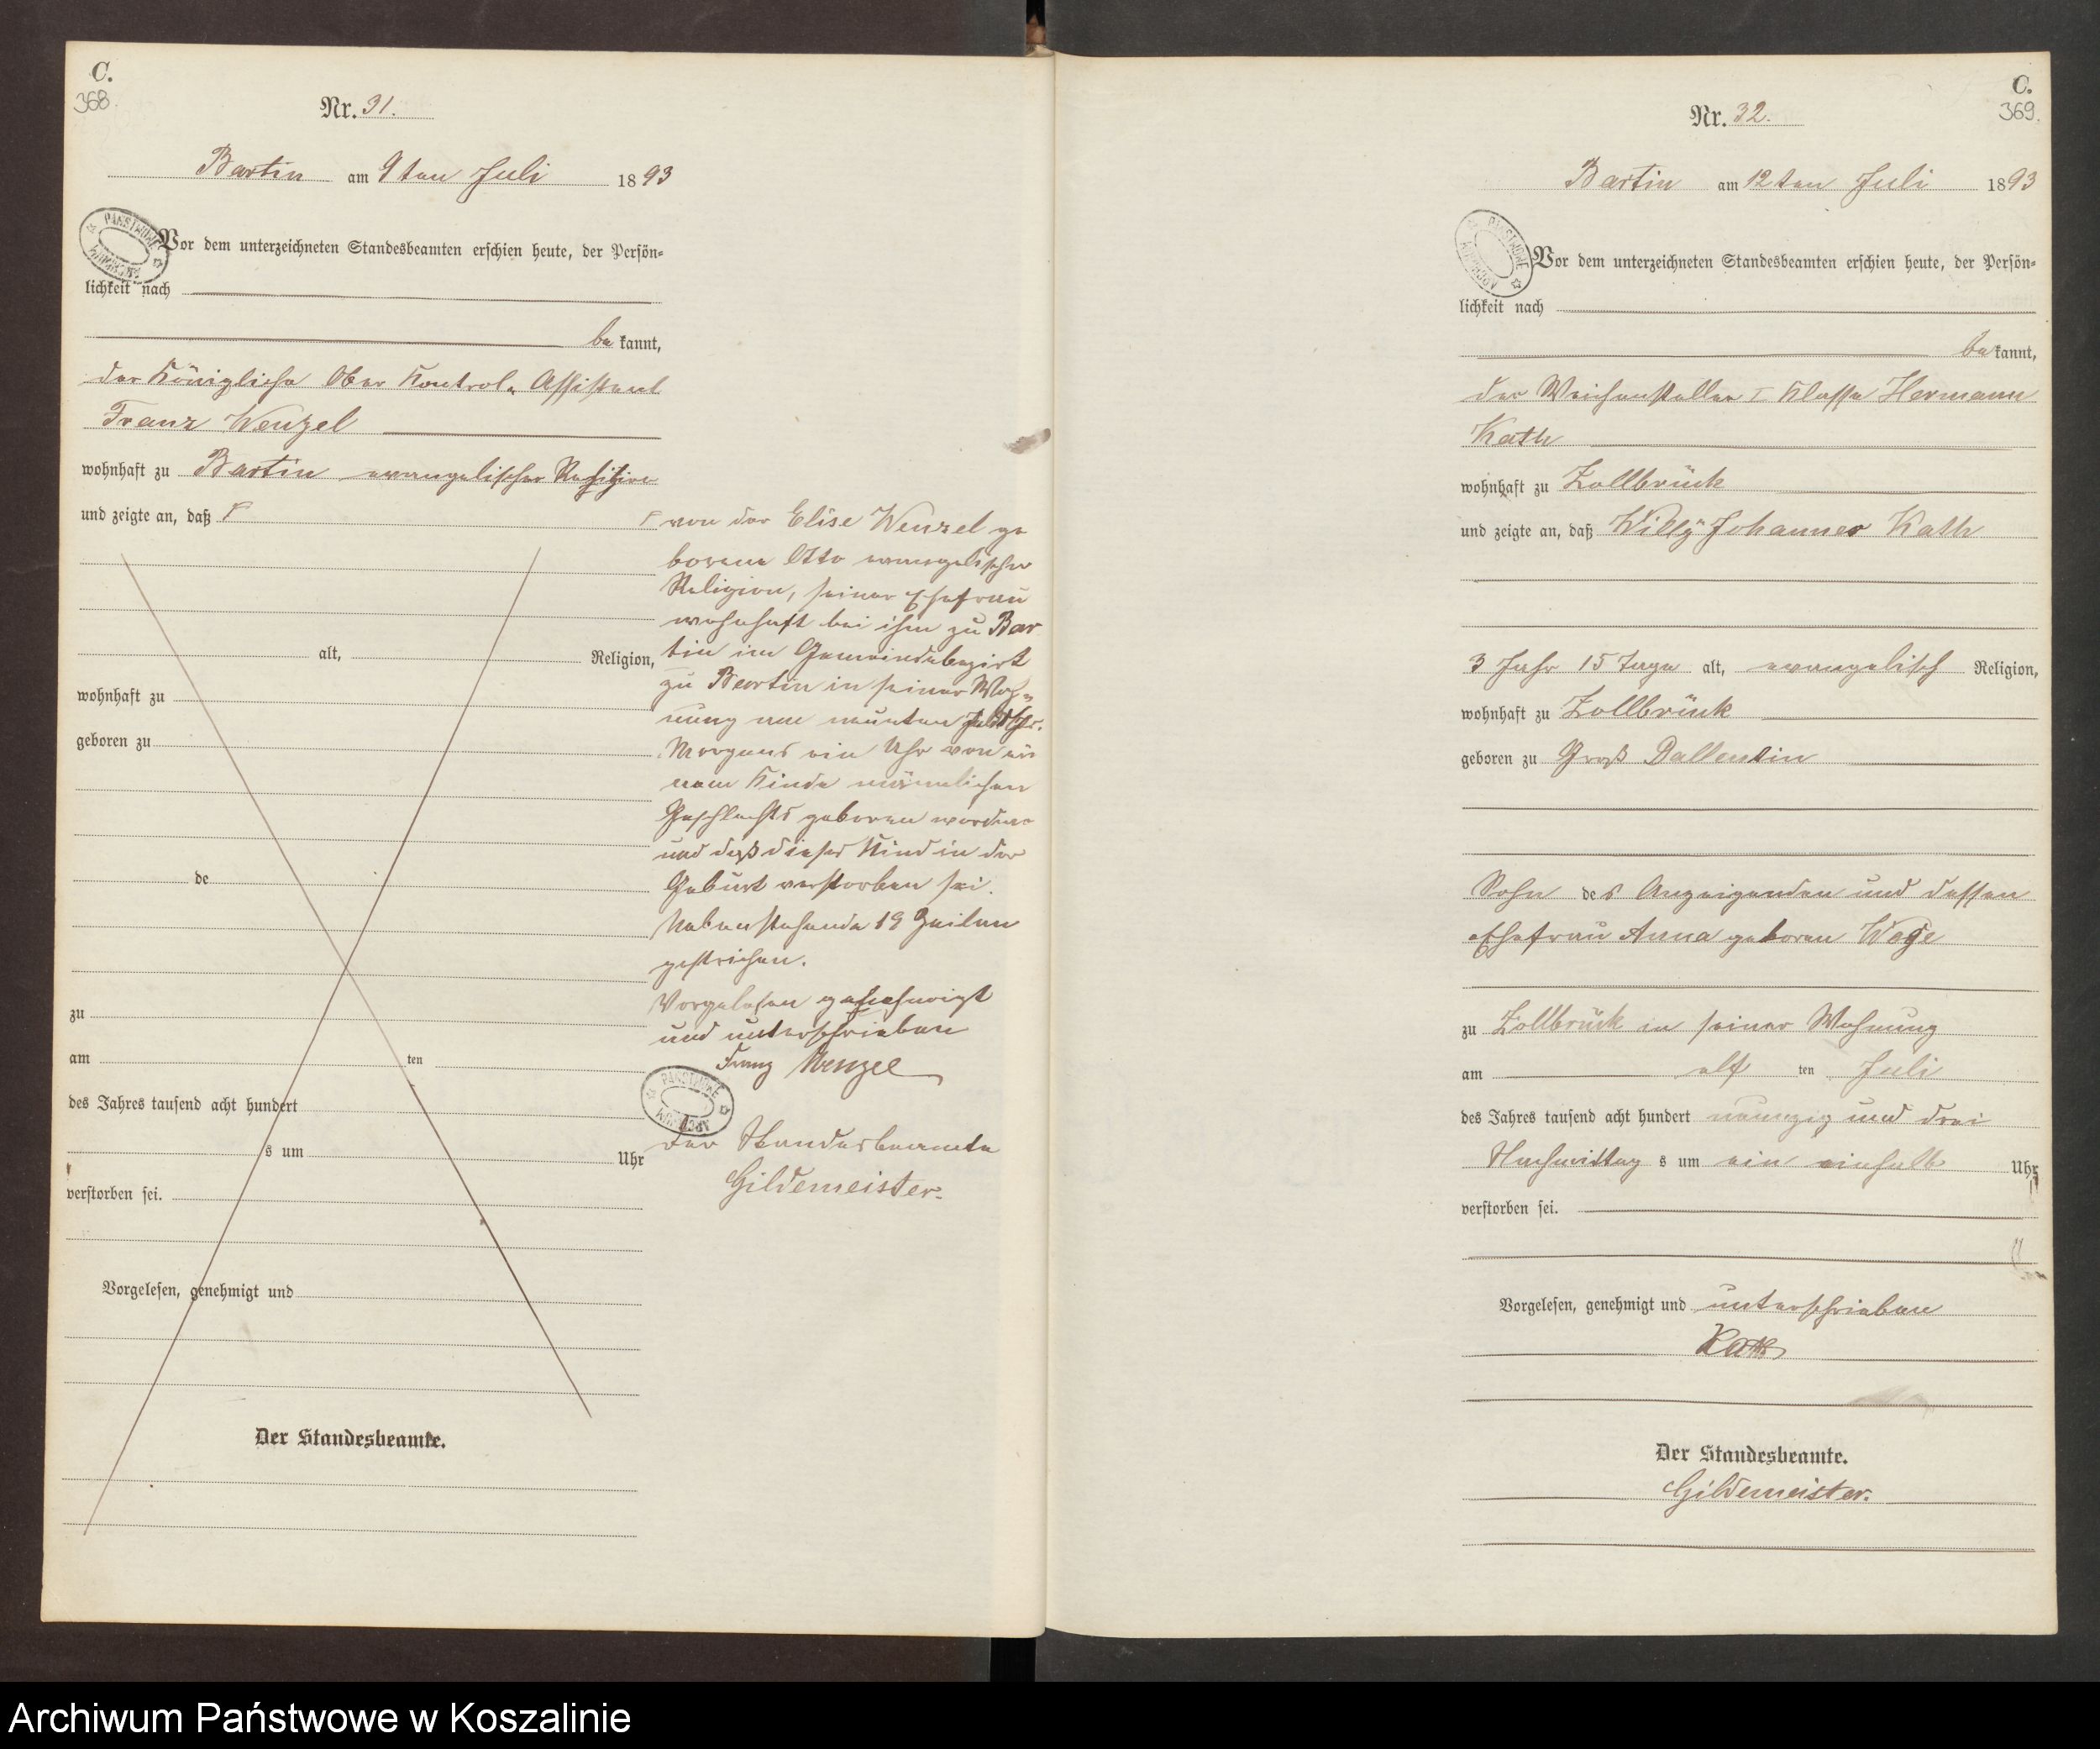 C.
368.
Nr. 31.
Bartin am 9ten Juli 1893
Vor dem unterzeichneten Standesbeamten erschien heute, der Persön=
lichkeit nach
be kannt,
der Königliche Ober Kontrol= Assistent
Franz Wenzel
wohnhaft zu Bartin evangelischer Religion
und zeigte an, daß
alt, Religion,
wohnhaft zu
geboren zu
de
zu
am ten
des Jahres tausend acht hundert
s um Uhr
verstorben sei.
Vorgelesen, genehmigt und
Der Standesbeamte.
von der Elise Wenzel ge
borene Otto evangelischer
Religion, seiner Ehefrau
wohnhaft bei ihm zu Bar
tin im Gemeindebezirk
zu Bartin in seiner Woh=
nung am neunten Juli
Morgens ein Uhr von ei
nem Kinde männlichen
Geschlechts geboren worden
und daß dieses Kind in der
Geburt verstorben sei.
Nebenstehende 19 Zeilen
gestrichen.
Vorgelesen genehmigt
und unterschrieben
Franz Wenzel
Der Standesbeamte
Gildemeister.
PAŃSTWOWE ARCHIWUM
PAŃSTWOWE ARCHIWUM
C.
369.
Nr. 32.
Bartin am 12ten Juli 1893
PAŃSTWOWE ARCHIWUM
Vor dem unterzeichneten Standesbeamten erschien heute, der Persön=
lichkeit nach
be kannt,
der Weichensteller I Klasse Hermann
Kath
wohnhaft zu Zollbrück
und zeigte an, daß Willy Johannes Kath
3 Jahr 15 Tage alt, evangelisch Religion,
wohnhaft zu Zollbrück
geboren zu Groß Dallentin
Sohn des Anzeigenden und dessen
Ehefrau Anna geboren Wege
zu Zollbrück in seiner Wohnung
am elf ten Juli
des Jahres tausend acht hundert neunzig und drei
Nachmittag s um ein einhalb Uhr
verstorben sei.
Vorgelesen, genehmigt und unterschrieben
Kath
Der Standesbeamte.
Gildemeister.
Archiwum Państwowe w Koszalinie